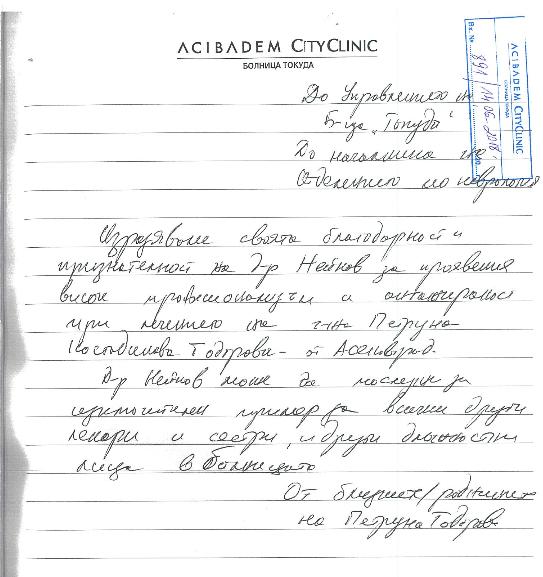 ACIBADEM CITYCLINIC
БОЛНИЦА ТОКУДА
ACIBADEM CITYCLINIC
БОЛНИЦА ТОКУДА
Вх. №
891/14.06.2018г.
До Управлението на
Б-ца "Токуда"
До началника на
Отделението по неврология
Изразяваме своята благодарност и
признателност на Д-р Нейков за проявения
висок професионализъм и ангажираност
при лечението на г-жа Петруна
Костадинова Тодорова - от Асеновград.
Д-р Нейков може да послужи за
изключителен пример за всички други
лекари и сестри, и други длъжностни
лица в болницата
От близките/роднините
на Петруна Тодорова